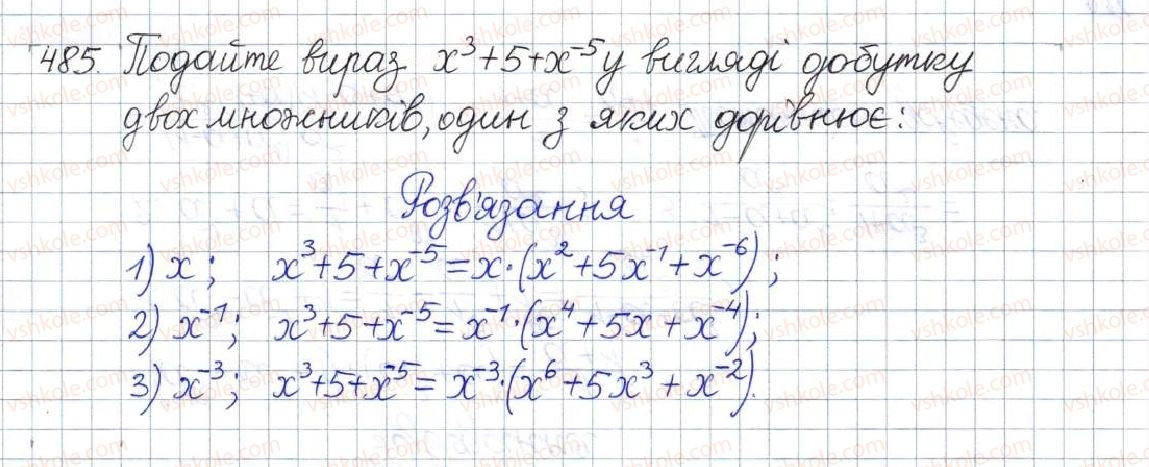 485. Подайте вираз x³+5+x⁻⁵ у вигляді добутку
двох множників, один з яких дорівнює:
Розв'язання
1) x; x³+5+x⁻⁵=x·(x²+5x⁻¹+x⁻⁶);
2) x⁻¹; x³+5+x⁻⁵=x⁻¹·(x⁴+5x+x⁻⁴);
3) x⁻³; x³+5+x⁻⁵=x⁻³·(x⁶+5x³+x⁻²).